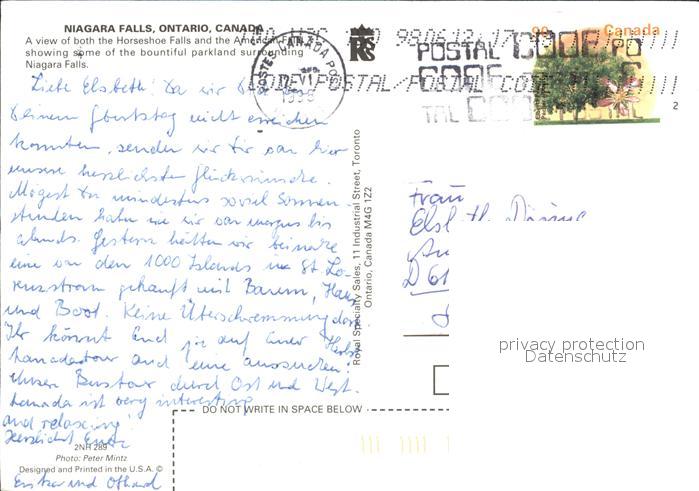 NIAGARA FALLS, ONTARIO, CANADA
A view of both the Horseshoe Falls and the American Falls
showing some of the bountiful parkland surrounding
Niagara Falls.
Liebe Elsbeth! Da wir
Deinem Geburtstag nicht erreichen
konnten, senden wir Dir von hier
unsere herzlichsten Glückwünsche.
Mögest Du mindestens soviel Sonnen-
stunden haben wie wir von morgens bis
abends. Gestern hätten wir beinahe
eine von den 1000 Islands im St. Lo-
renzstrom gekauft mit Baum, Haus
und Boot. Keine Überschwemmung dort.
Ihr könnt Euch ja auf Eurer Herbst
kanadatour auch eine aussuchen!
Unsere Bustour durch Ost und West-
kanada ist very interesting
and relaxing!
Herzlichst Eure
2NH 289
Photo: Peter Mintz
Designed and Printed in the U.S.A. ©
und Othard
Royal Specialty Sales, 11 Industrial Street, Toronto
Ontario, Canada M4G 1Z2
POSTES CANADA POST
VI
1998
98 06 12
POSTAL CODE
CODE POSTAL/POSTAL CODE
Canada
2
Frau
D 61
privacy protection
Datenschutz
DO NOT WRITE IN SPACE BELOW